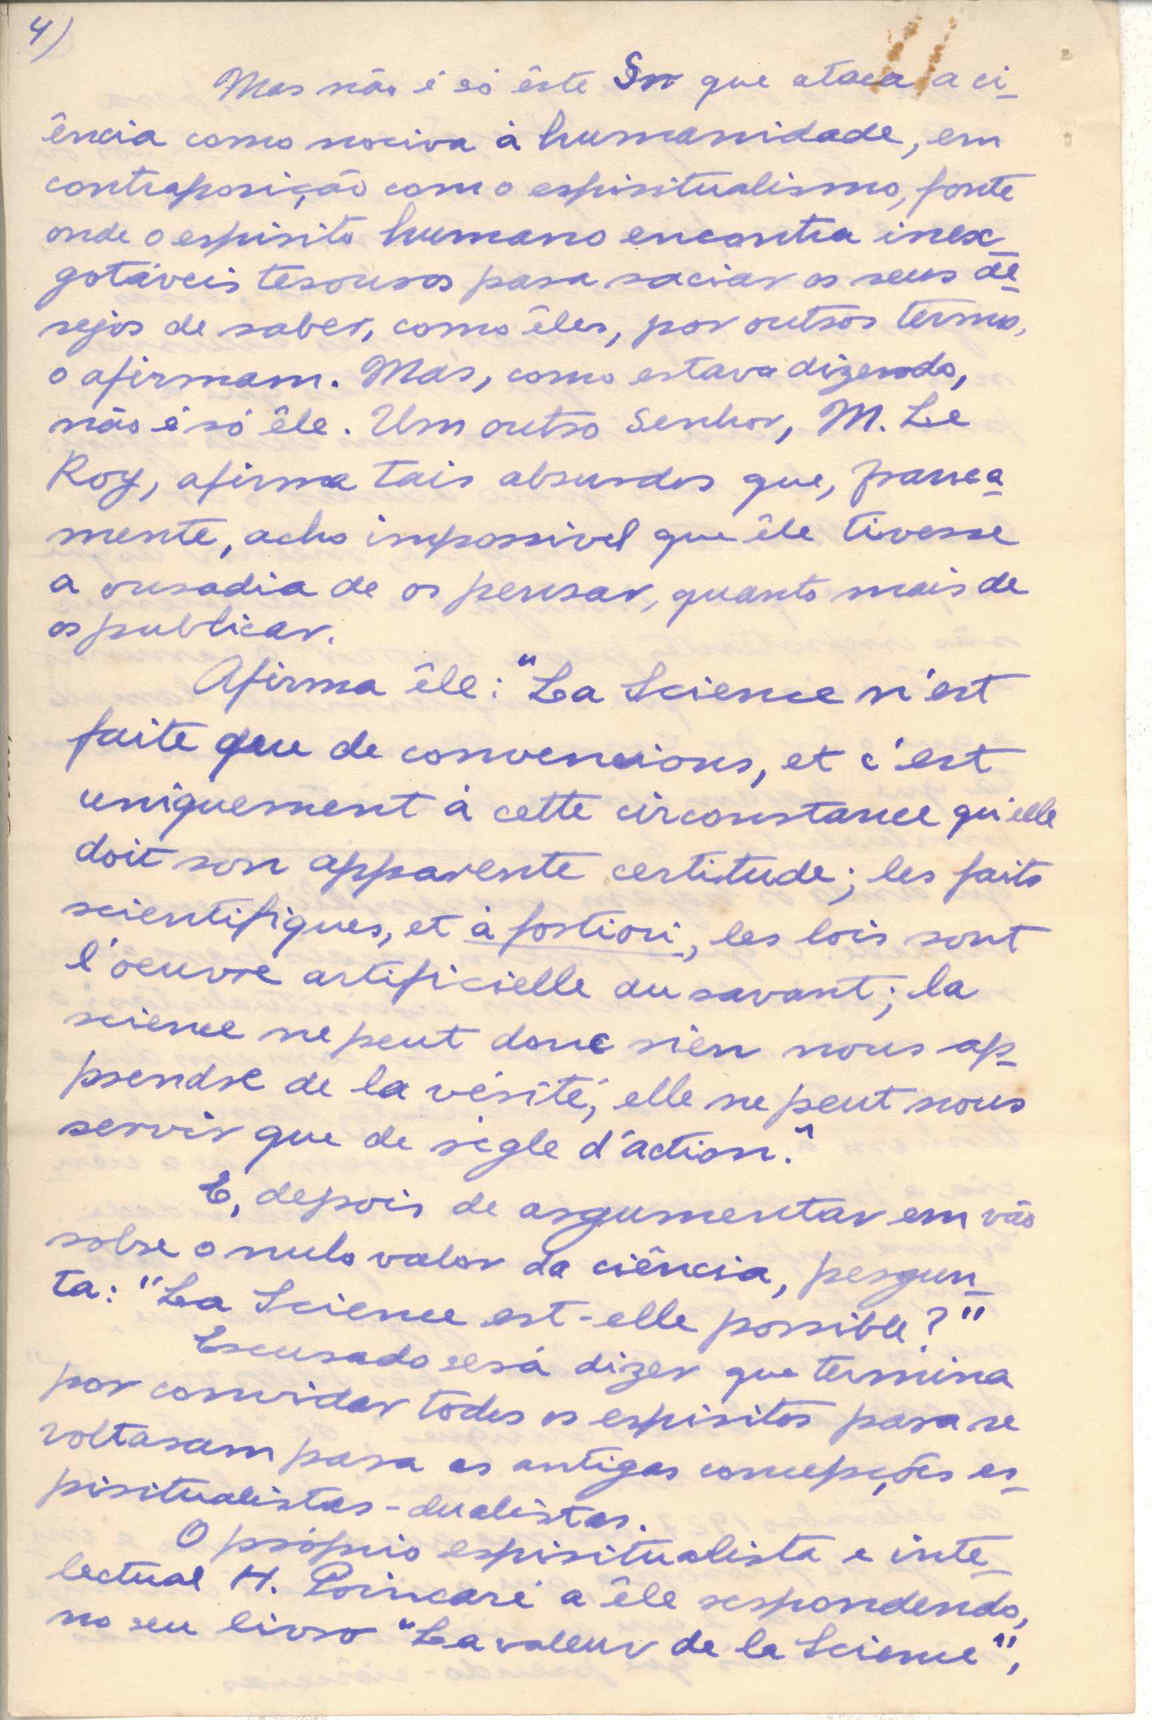 4)
Mas não é só êste Snr que ataca a ci-
ência como nociva à humanidade, em
contraposição com o espiritualismo, fonte
onde o espírito humano encontra inex-
gotáveis tesouros para saciar os seus de-
sejos de saber, como êles, por outros termos,
o afirmam. Mas, como estava dizendo,
não é só êle. Um outro Senhor, M. Le
Roy, afirma tais absurdos que, franca-
mente, acho impossivel que êle tivesse
a ousadia de os pensar, quanto mais de
os publicar.
Afirma êle: "La Science n'est
faite que de convencions, et c'est
uniquement à cette circonstance qu'elle
doit son apparente certitude; les faits
scientifiques, et à fortiori, les lois sont
l'oeuvre artificielle du savant; la
science ne peut donc rien nous ap-
prendre de la vérité; elle ne peut nous
servir que de règle d'action."
E, depois de argumentar em vão
sobre o nulo valor da ciência, pergun-
ta: "La Science est-elle possible?"
Escusado será dizer que termina
por convidar todos os espíritos para se
voltaram para as antigas concepções es-
piritualistas-dualistas.
O próprio espiritualista e inte-
lectual H. Poincaré a êle respondendo,
no seu livro "La valeur de la Science",